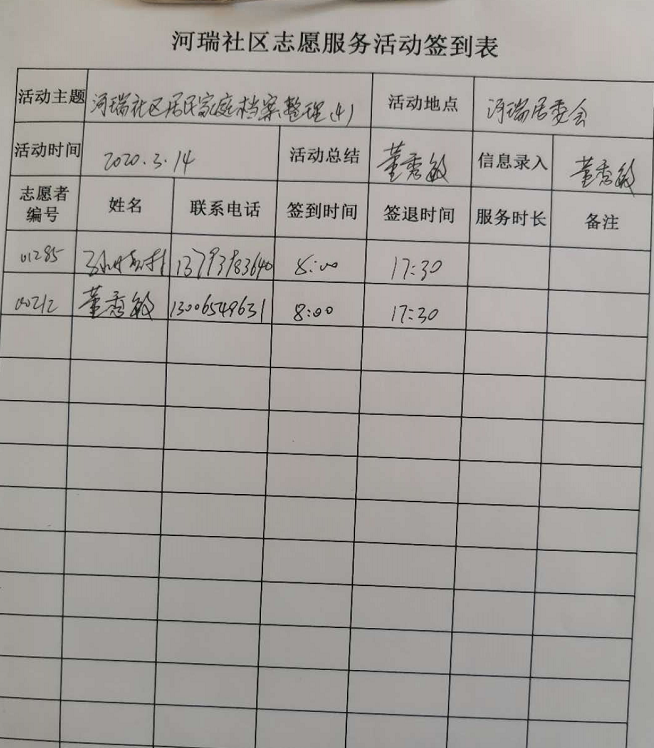 河瑞社区志愿服务活动签到表
活动主题 河瑞社区居民家庭档案整理(4) 活动地点 河瑞居委会
活动时间 2020.3.14 活动总结 董秀敏 信息录入 董秀敏
志愿者编号 姓名 联系电话 签到时间 签退时间 服务时长 备注
01285 13793783640 8:00 17:30
00212 董秀敏 13006549631 8:00 17:30